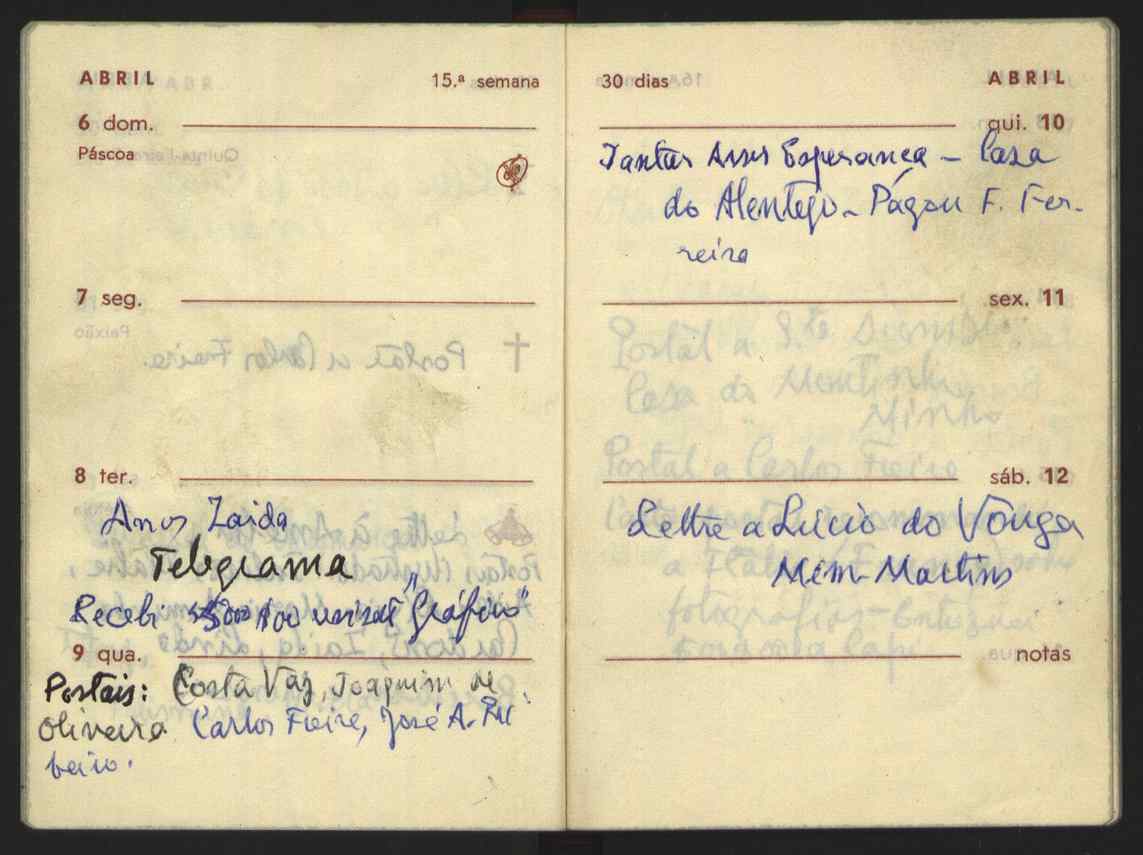 ABRIL 15.ª semana
6 dom.
Páscoa
7 seg.
8 ter.
Anos Zaida
Telegrama
Recebi 5000$00 "Gráfico"
9 qua.
Postais: Costa Vaz, Joaquim de
Oliveira Carlos Freire, José A. Ri
beiro.
30 dias ABRIL
qui. 10
Jantar Anos Esperança – Casa
do Alentejo – Pagou F. Fer-
reira
sex. 11
sáb. 12
Lettre a Lúcio do Vouga
Mem-Martins
notas